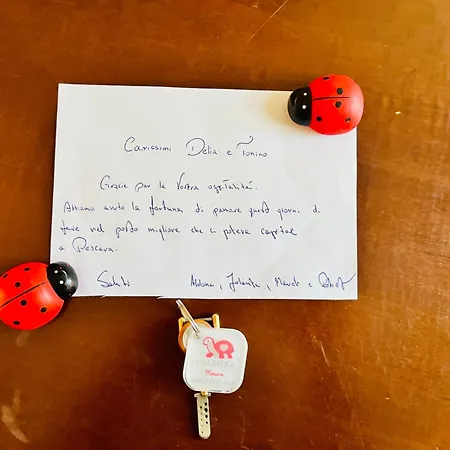 Carissimi Delia e Tonino
Grazie per la Vostra ospitalità.
Abbiamo avuto la fortuna di passare questi giorni di
ferie nel posto migliore che ci poteva capitare
a Pescara.
Saluti
Aldona, Jolanta, Marek e